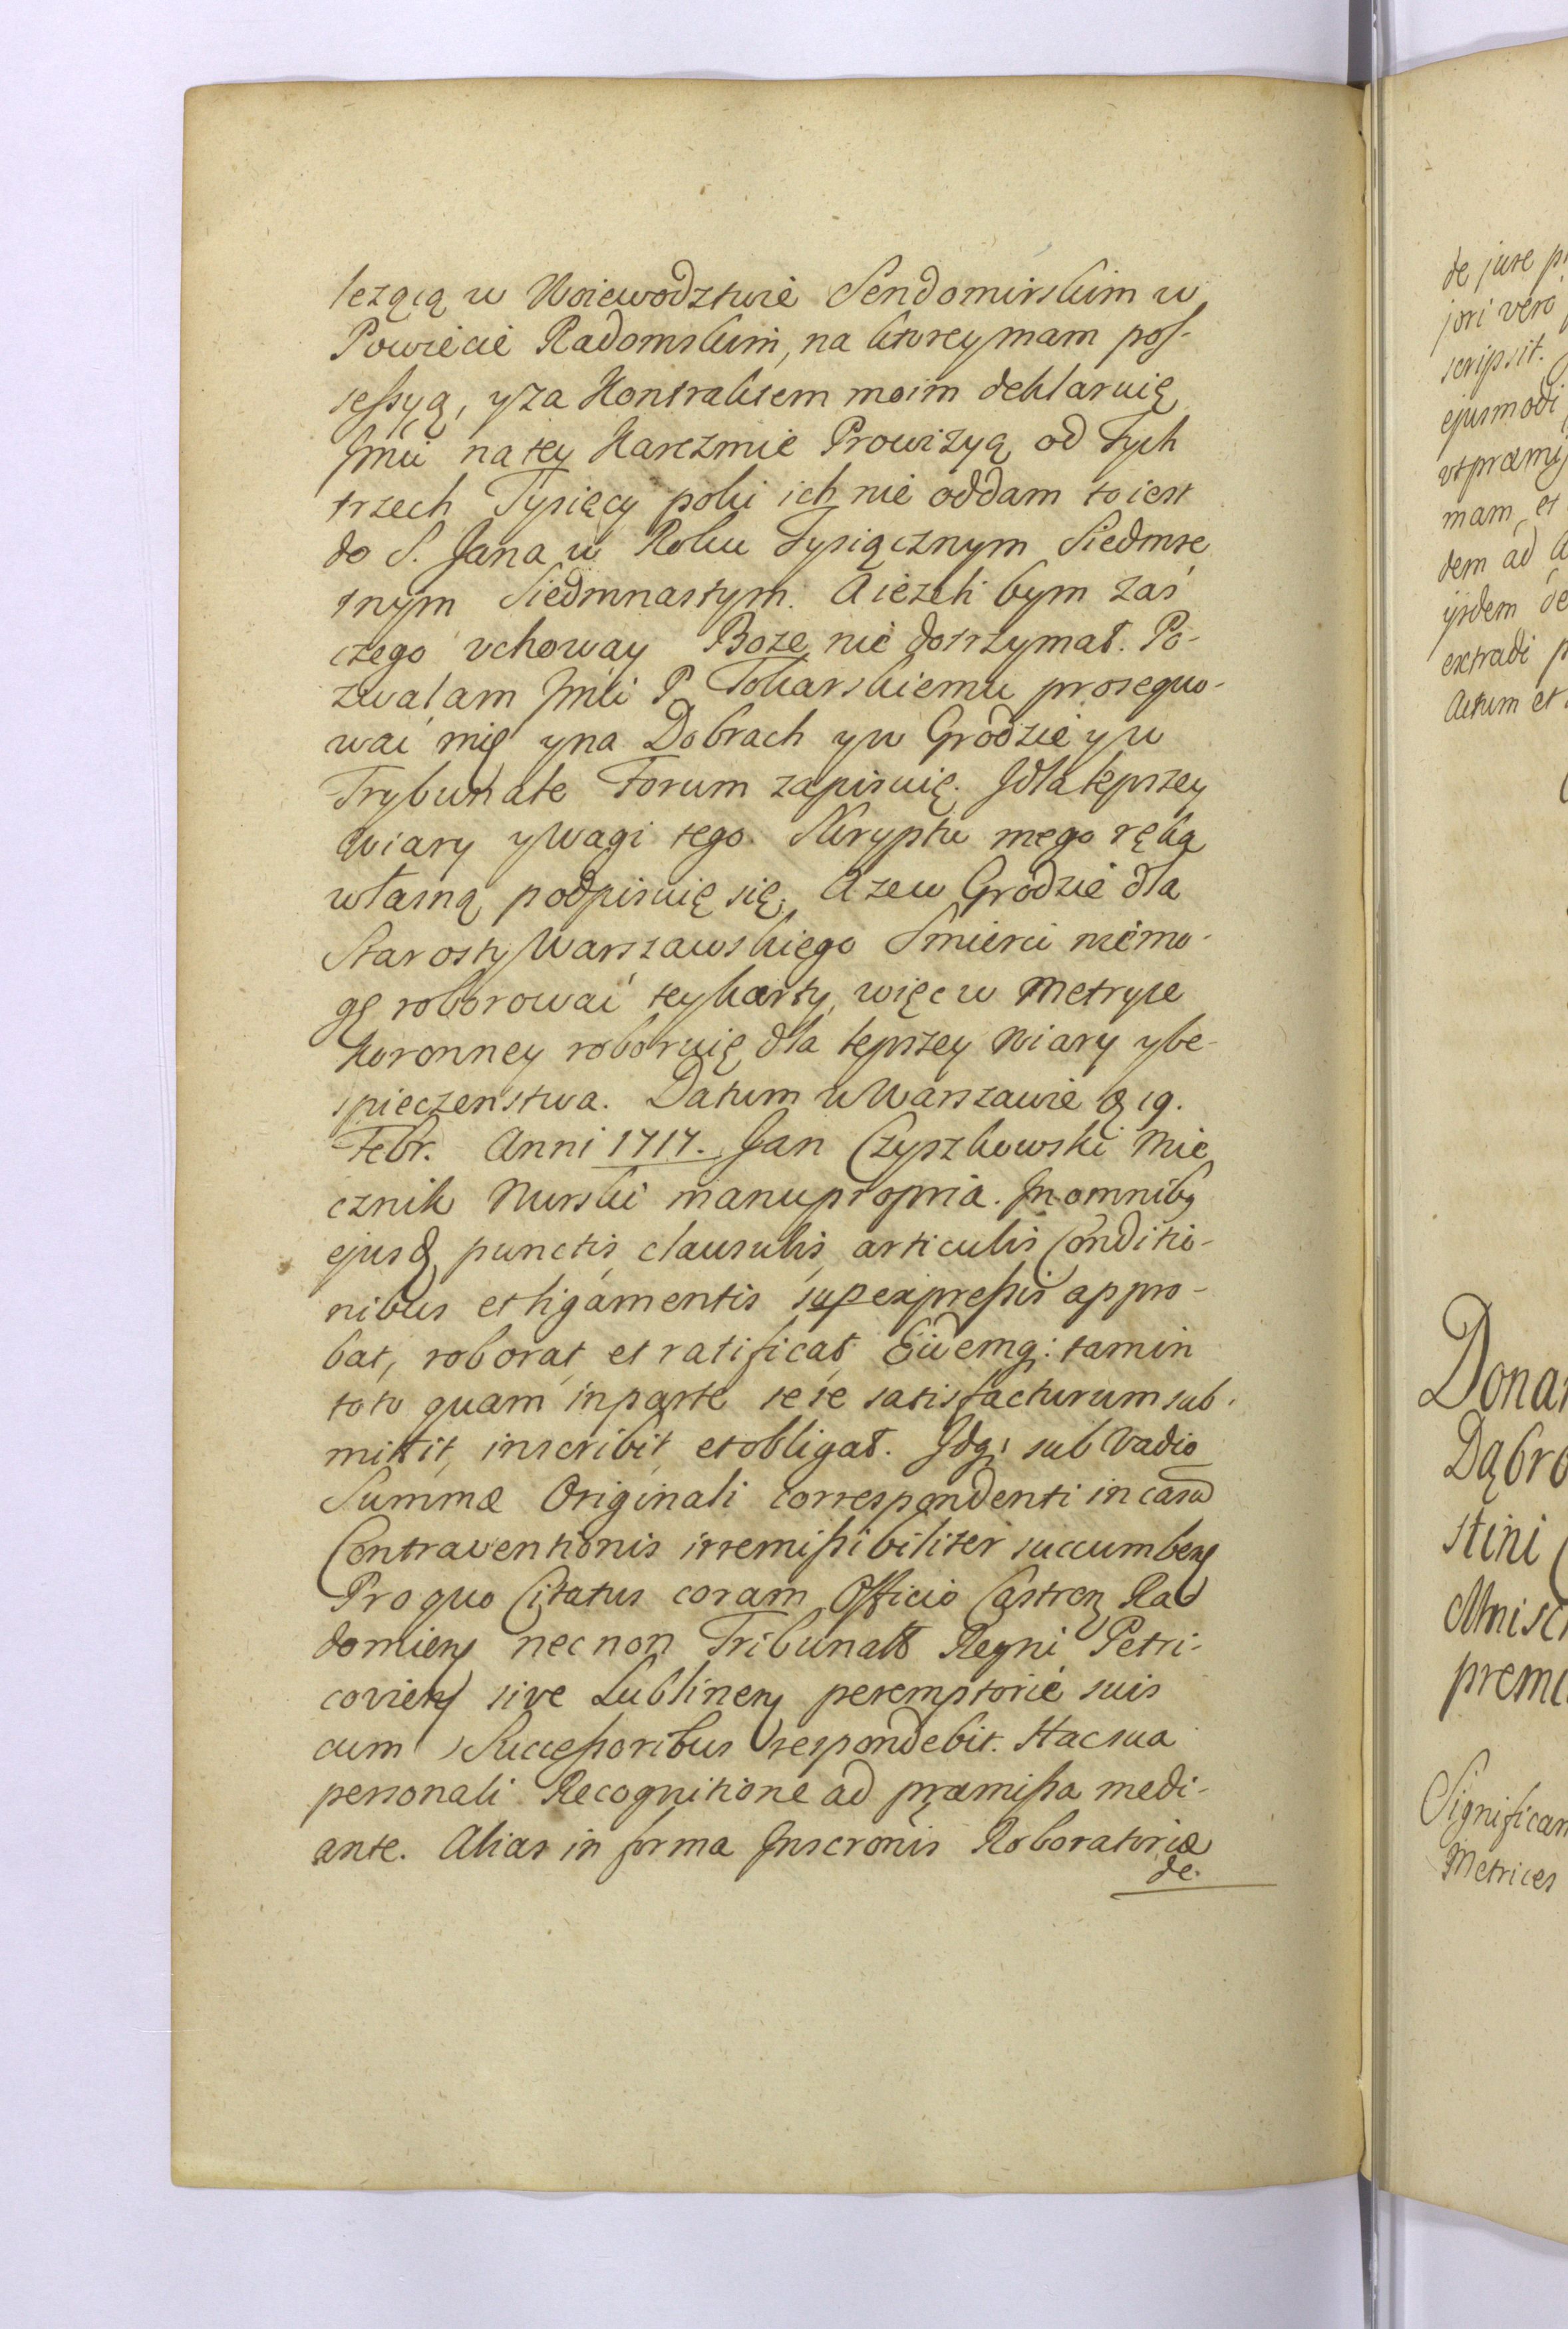 lezącą w Woiewodztwie Sendomirskim w
Powiecie Radomskim, na ktorey mam pos-
sessyą, y za Kontraktem moim deklaruię
Jmći na tey Karczmie Prowizyą od Tych
trzech Tysięcy poki ich nie oddam to iest
do S. Jana w Roku Tysiącznym Siedmse
tnym Siedmnastym. A ieżeli bym zaś
czego vchoway Boże nie dotrzymał. Po-
zwalam Jmći P. Tokarskiemu prosequo-
wać mię y na Dobrach y w Grodzie y w
Trybunale Forum zapisuię. J dla lepszey
wiary y wagi tego Skryptu mego ręką
własną podpisuię się. A że w Grodzie dla
Starosty Warszawskiego Smierci niemo-
gę roborować tey karty, więc w Metryce
Koronney roboruię dla lepszey wiary y be-
spieczenstwa. Datum w Warszawie d 19.
Febr. Anni 1717. Jan Czyszkowski Mie
cznik Nurski manu propria. Jn omnibg
ejusd punctis, clausulis, articulis Conditio-
nibus et ligamentis sup expressis appro-
bat, roborat, et ratificat, Eidemq: tam in
toto quam in parte sese satisfacturum sub-
mittit, inscribit, et obligat. Jdq: sub Vadio
Summæ Originali correspondenti in casu
Contraventionis irremissibiliter succumben
Pro quo Citatus coram Officio Castren Ra
domien nec non Tribunali Regni Petri-
covien sive Lublinen peremptorie suis
cum Successoribus respondebit. Hac sua
personali Recognitione ad præmissa medi-
ante. Alias in forma Jnscronis Roboratoriæ
de.
de jure
jori vero
scripsit.
ejusmodi
mam et
dem ad
ijsdem de
extradi
Actum et
Dona
Dąbro
stini
prem
Significa
Metrices